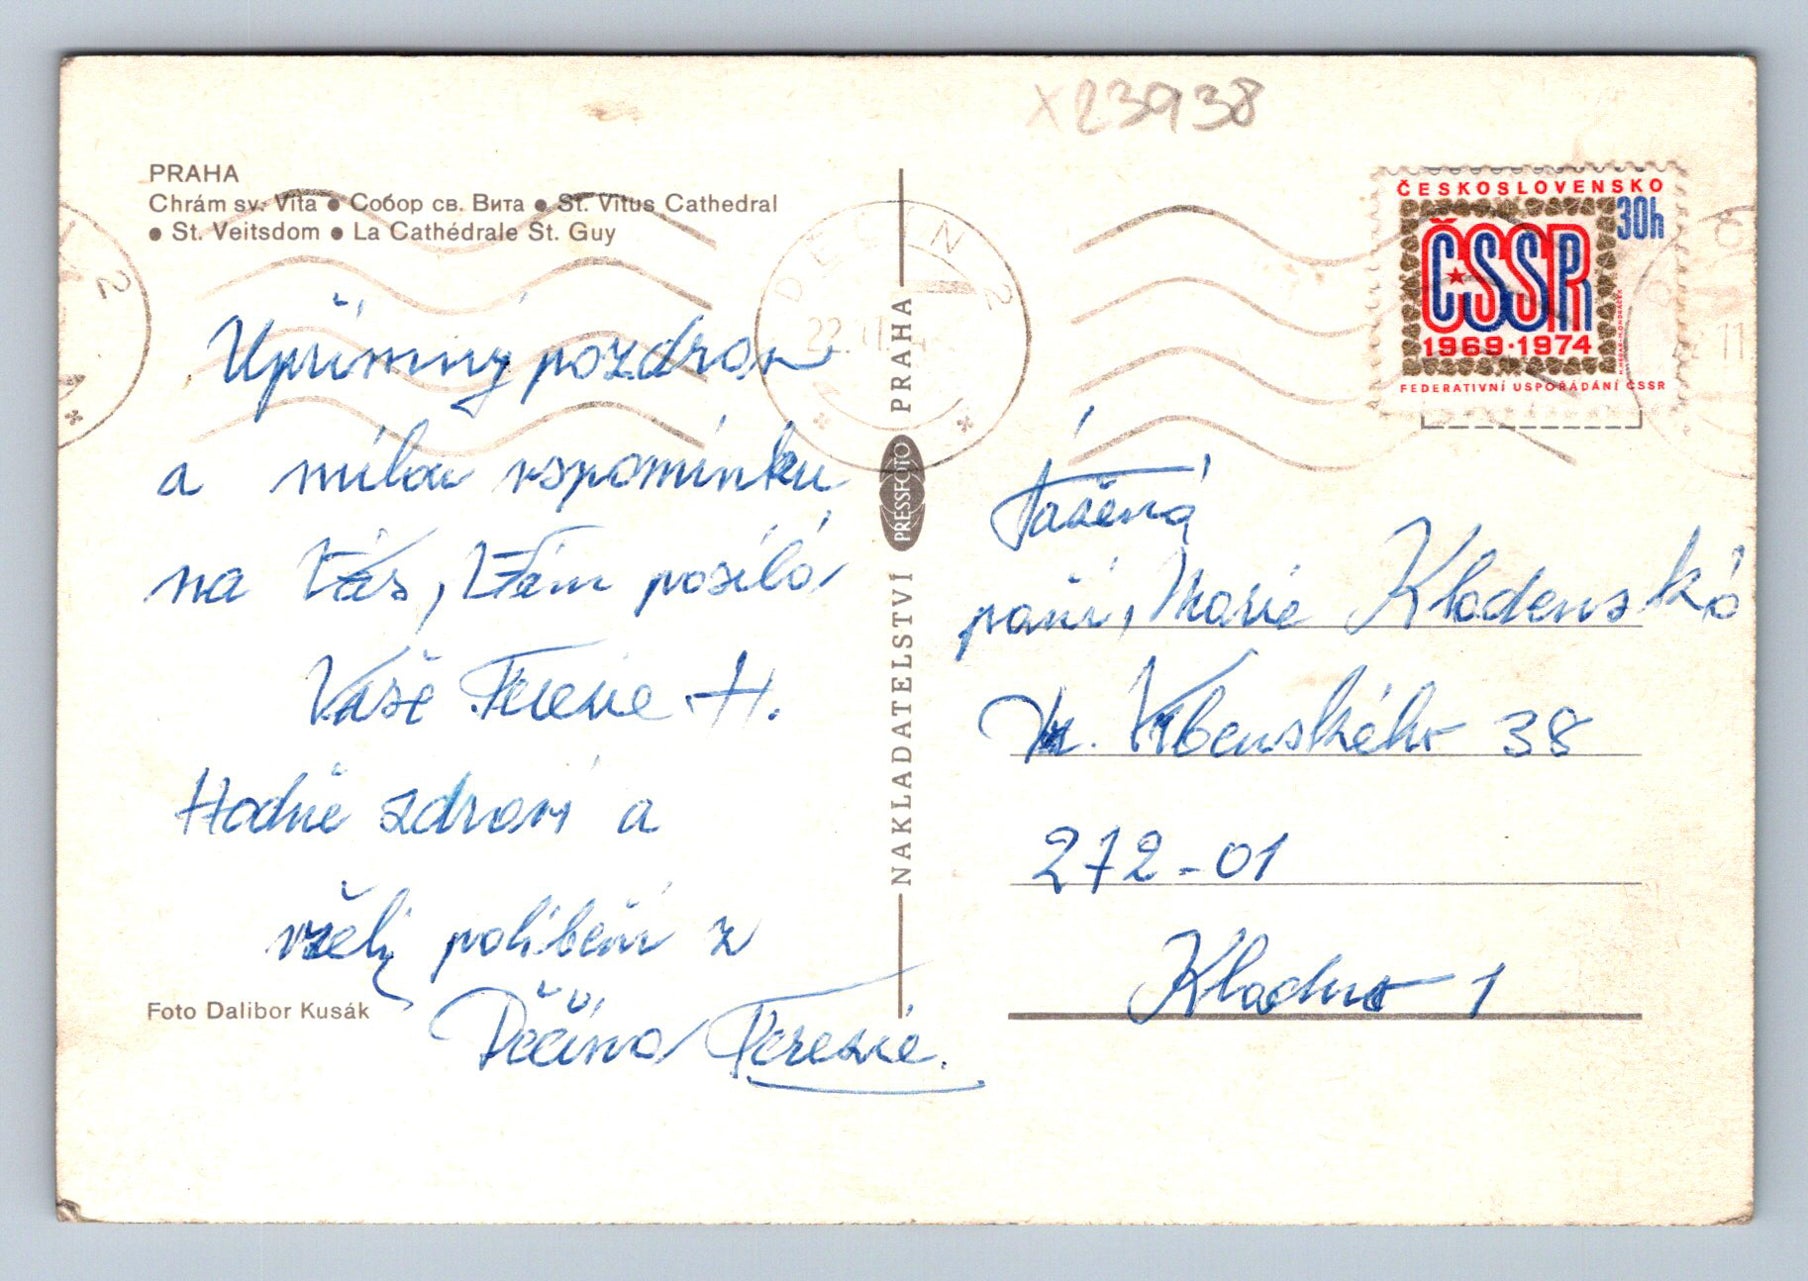 x23938
PRAHA
Chrám sv. Víta ● Собор св. Вита ● St. Vitus Cathedral
● St. Veitsdom ● La Cathédrale St. Guy
Upřímný pozdrav
a milou vspomínku
na Vás, Vám posílá
Vaše Terezie H.
Hodně zdraví a
vřelý políbení z
Děčína Terezie.
Foto Dalibor Kusák
NAKLADATELSTVÍ PRESSFOTO PRAHA
DĚČÍN 2
22.11.
ČESKOSLOVENSKO
30h
ČSSR
1969·1974
FEDERATIVNÍ USPOŘÁDÁNÍ ČSSR
Vážená
paní, Marie Kladenská
Vrbenského 38
272-01
Kladno 1